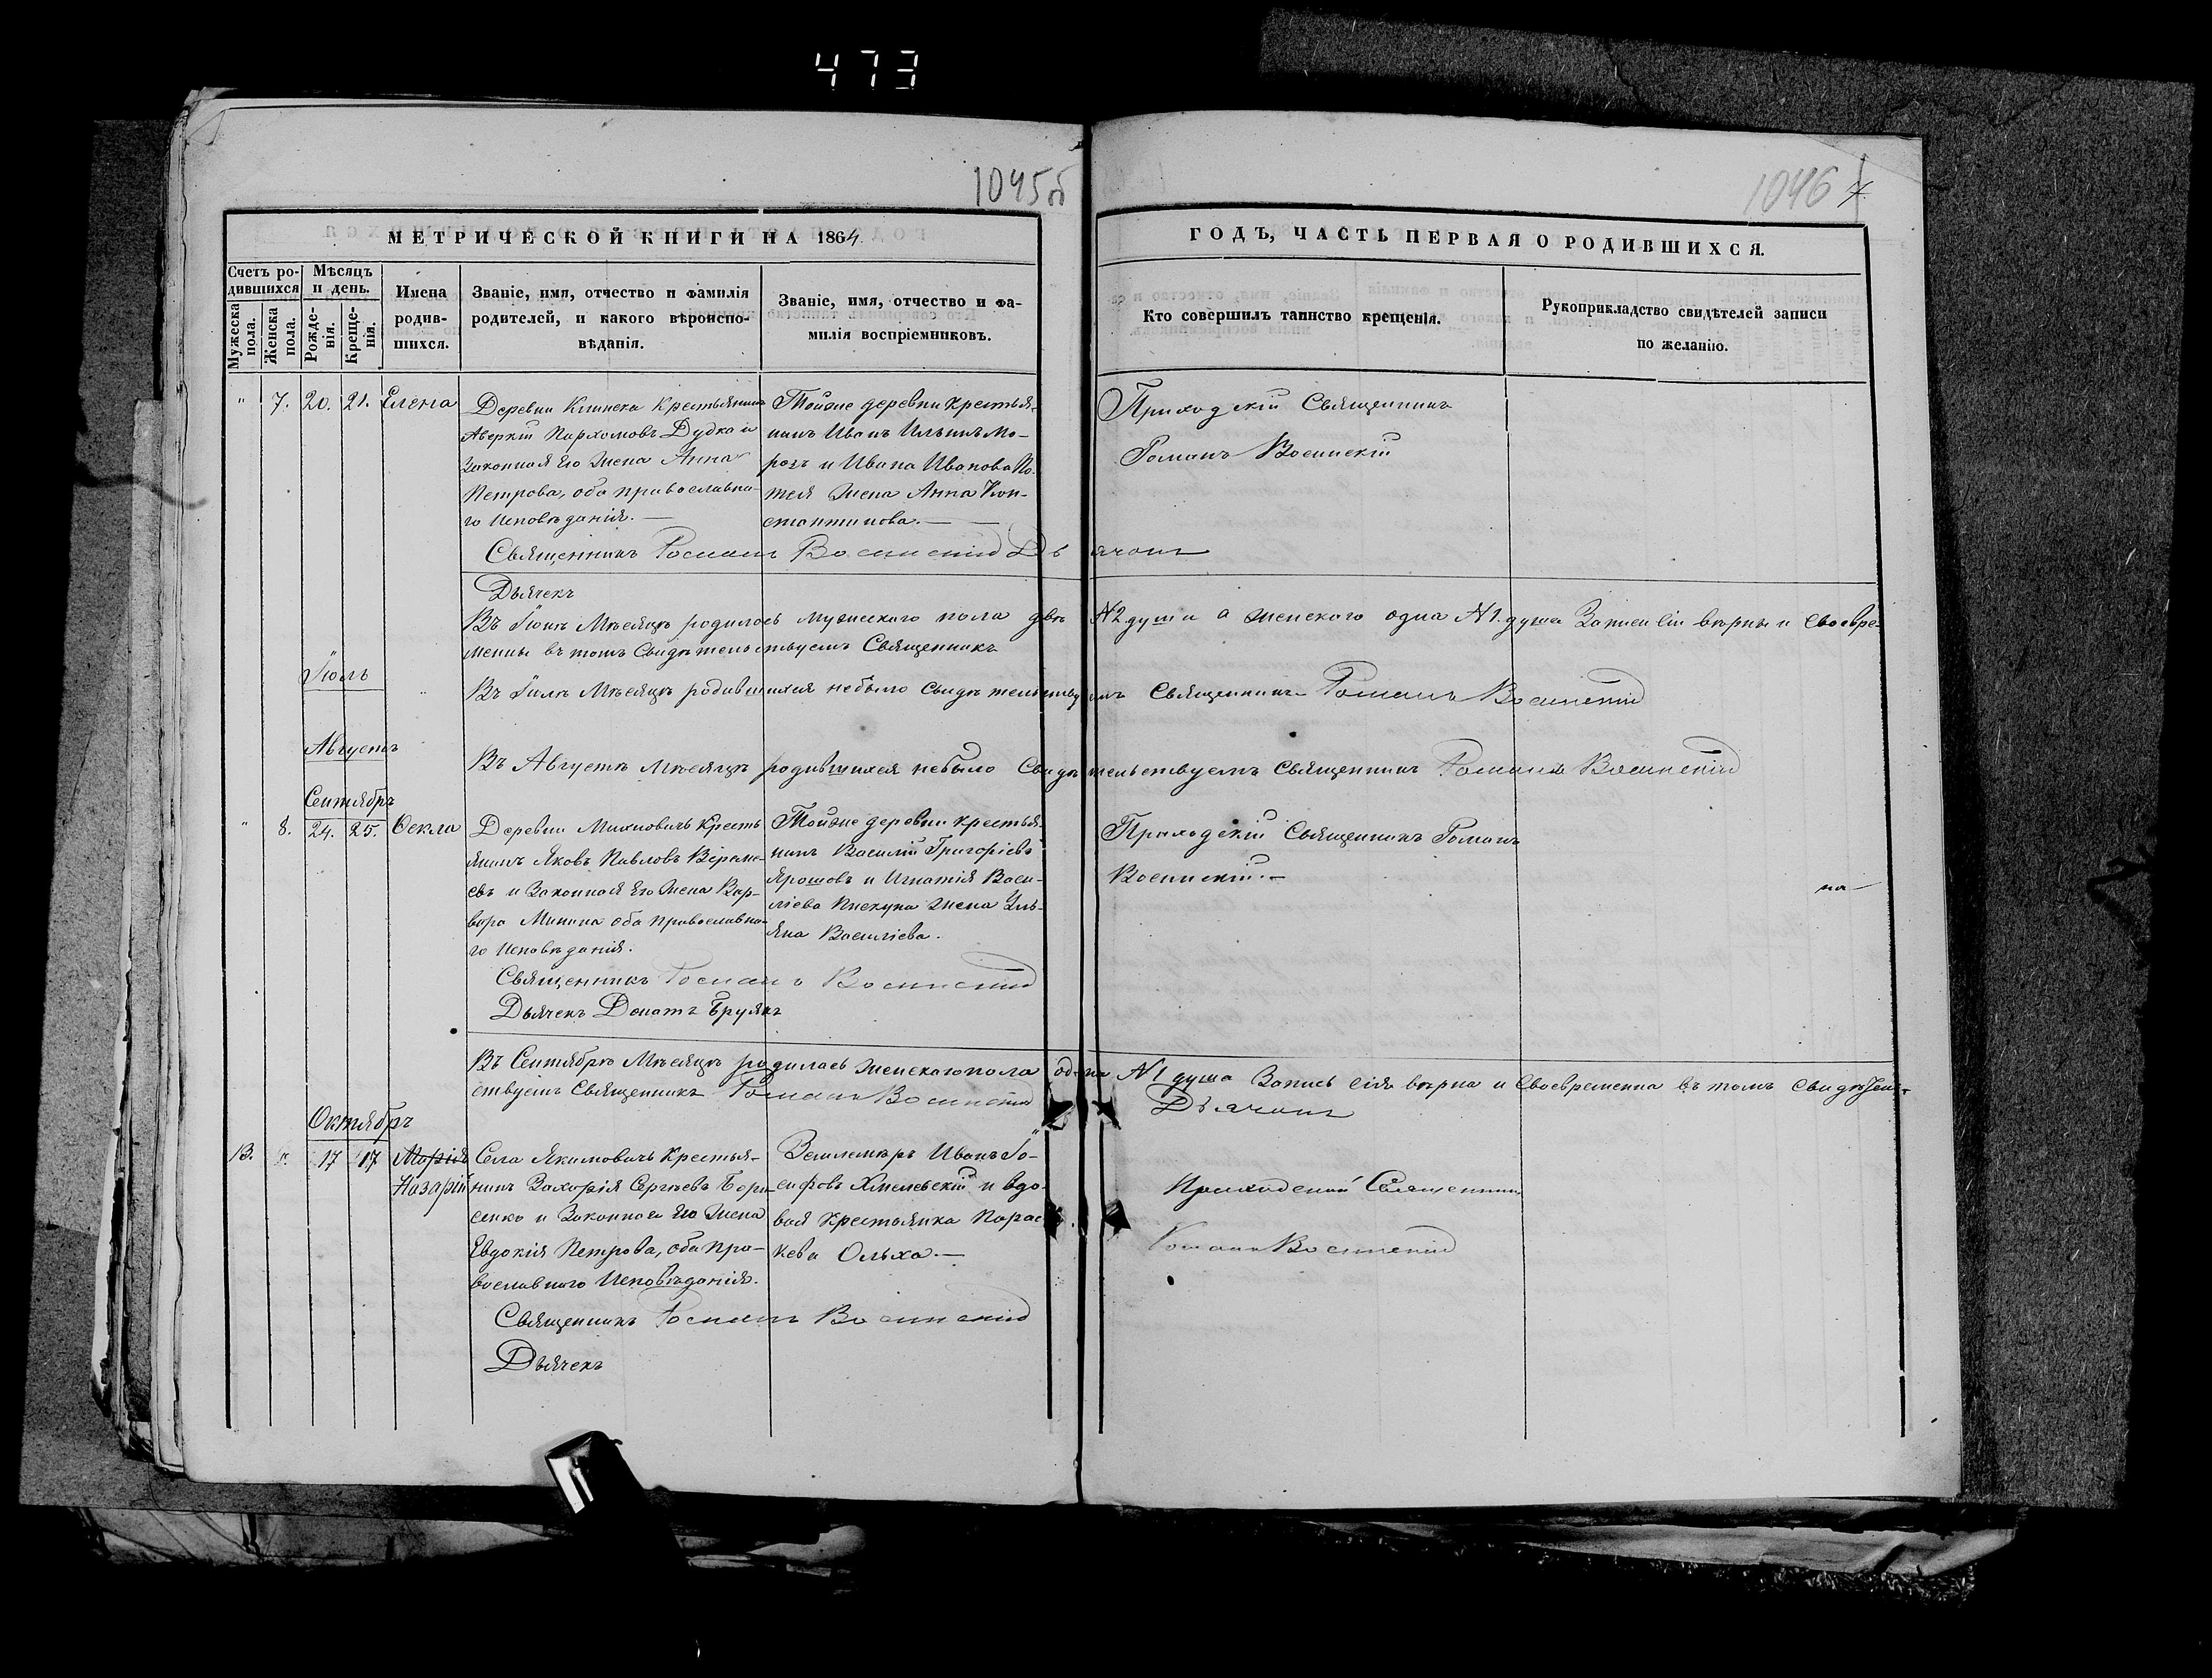 473
1045об
1046 7
МЕТРИЧЕСКОЙ КНИГИ НА 1864
Счетъ родившихся
Мужеска пола.
Женска пола.
Мѣсяцъ и день.
Рожденія.
Крещенія.
Имена родившихся.
Званіе, имя, отчество и фамилія
родителей, и какого вѣроиспо-
вѣданія.
Званіе, имя, отчество и фа-
милія воспріемниковъ.
ГОДЪ, ЧАСТЬ ПЕРВАЯ О РОДИВШИХСЯ.
Кто совершилъ таинство крещенія.
Рукоприкладство свидѣтелей записи
по желанію.
" 7. 20. 21. Елена
Деревни Клинска Крестьянинъ
Аверкій Пархомовъ Дудка и
Законная Его Жена Анна
Петрова, оба православна-
го Исповѣданія.—
Тойже деревни крестья-
нинъ Иванъ Ильинъ Мо-
розъ и Ивана Иванова По-
тея Жена Анна Кон-
стантинова.—
Приходскій Священникъ
Романъ Воинскій
Священникъ Романъ Воинскій Дьячокъ
Дьячекъ
Въ Іюнѣ Мѣсяцѣ родилось мужескаго пола двѣ №2 души а женскаго одна №1. душа Записи сіи вѣрны и Своевре-
менны въ томъ Свидѣтельствуемъ Священникъ
Іюль
Въ Іюлѣ Мѣсяцѣ родившихся небыло Свидѣтельствуемъ Священникъ Романъ Воинскій
Августъ
Въ Августѣ Мѣсяцѣ родившихся небыло Свидѣтельствуемъ Священникъ Романъ Воинскій
Сентябрь
" 8. 24. 25. Ѳекла
Деревни Михновичъ Кресть
янинъ Яковъ Павловъ
евъ и Законная Его Жена Вар-
вара Минина оба Православна-
го Исповѣданія.
Тойже деревни крестья-
нинъ Василій Григоріевъ
Ярошовъ и Игнатія Васи-
ліева Жена Уль-
яна Василіева.
Приходскій Священникъ Романъ
Воинскій.—
на—
Священникъ Романъ Воинскій
Дьячекъ Донатъ
Въ Сентябрѣ Мѣсяцѣ родилась женскаго пола одна №1 душа Запись сія вѣрна и Своевременна въ томъ Свидѣтель-
ствуемъ Священникъ Романъ Воинскій Дьячокъ
Октябрь
13. " 17 17 Марія
Назарій
Села Якимовичъ Крестья-
нинъ Захарія Сергѣевъ Бори-
сенко и Законная Его Жена
Евдокія Петрова, оба Пра-
вославнаго Исповѣданія.
Землемѣръ Иванъ Іо-
сифовъ Хмелевскій и вдо-
вая Крестьянка Парас-
кева Ольха.—
Приходскій Священникъ
Романъ Воинскій
Священникъ Романъ Воинскій
Дьячекъ